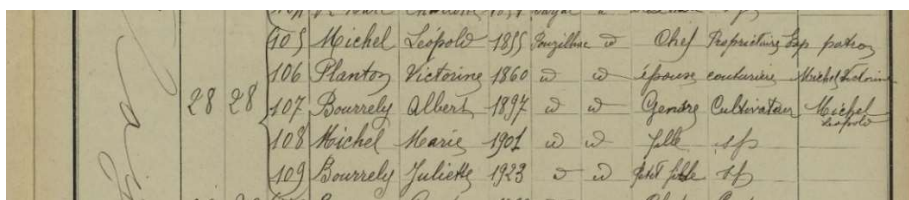 105 Michel Léopold 1855 Pouzilhac d Chef Propriétaire Exp patron
106 Planton Victorine 1860 d d épouse couturière Michel Victorine
28 28 107 Bourrely Albert 1897 d d Gendre Cultivateur Michel Léopold
108 Michel Marie 1901 d d fille sp
109 Bourrely Juliette 1923 d d petite fille sp